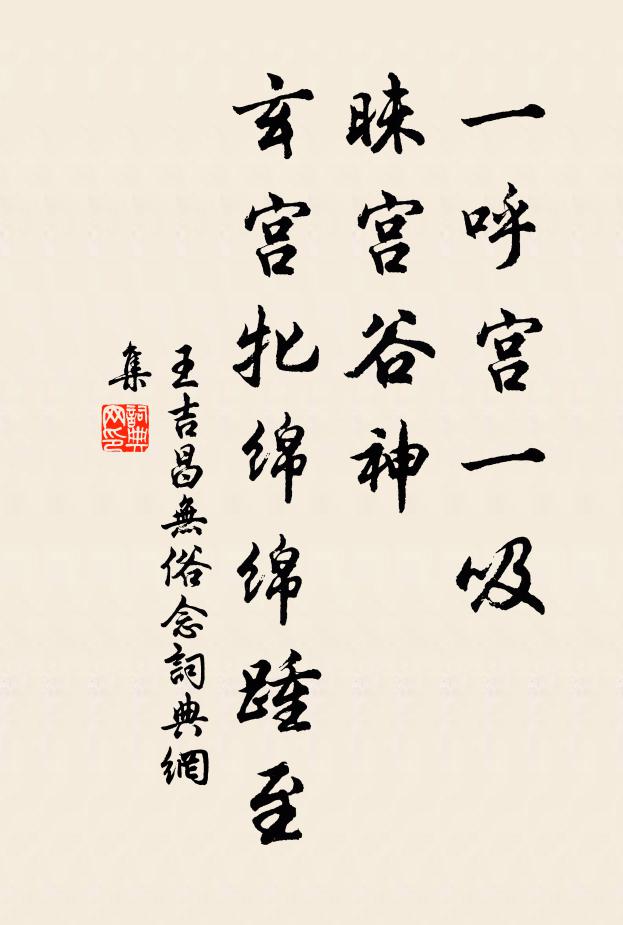 一呼宫一吸
睐宫谷神
玄宫牝绵绵踵至
王吉昌無俗念詞典網
集
詞典网印